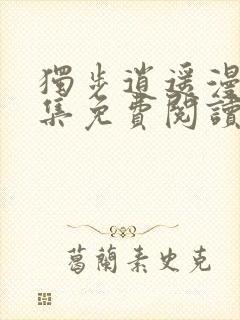 獨步逍遥漫
集免費閱讀
葛蘭素史克